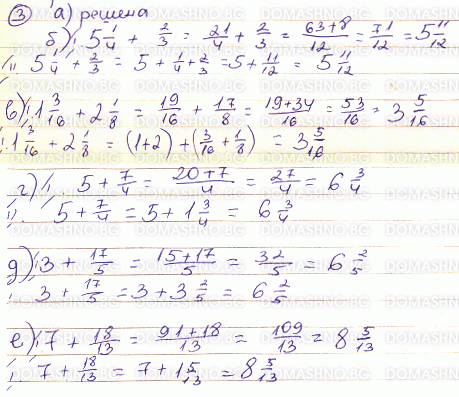 ③ а) решена
б) I, 5 1/4 + 2/3 = 21/4 + 2/3 = (63+8)/12 = 71/12 = 5 11/12
II 5 1/4 + 2/3 = 5 + 1/4 + 2/3 = 5 + 11/12 = 5 11/12
в) I, 1 3/16 + 2 1/8 = 19/16 + 17/8 = (19+34)/16 = 53/16 = 3 5/16
1 3/16 + 2 1/8 = (1+2) + (3/16 + 1/8) = 3 5/16
г) I, 5 + 7/4 = (20+7)/4 = 27/4 = 6 3/4
II, 5 + 7/4 = 5 + 1 3/4 = 6 3/4
д) I, 3 + 17/5 = (15+17)/5 = 32/5 = 6 2/5
3 + 17/5 = 3 + 3 2/5 = 6 2/5
е) I, 7 + 18/13 = (91+18)/13 = 109/13 = 8 5/13
7 + 18/13 = 7 + 1 5/13 = 8 5/13
DOMASHNO.BG